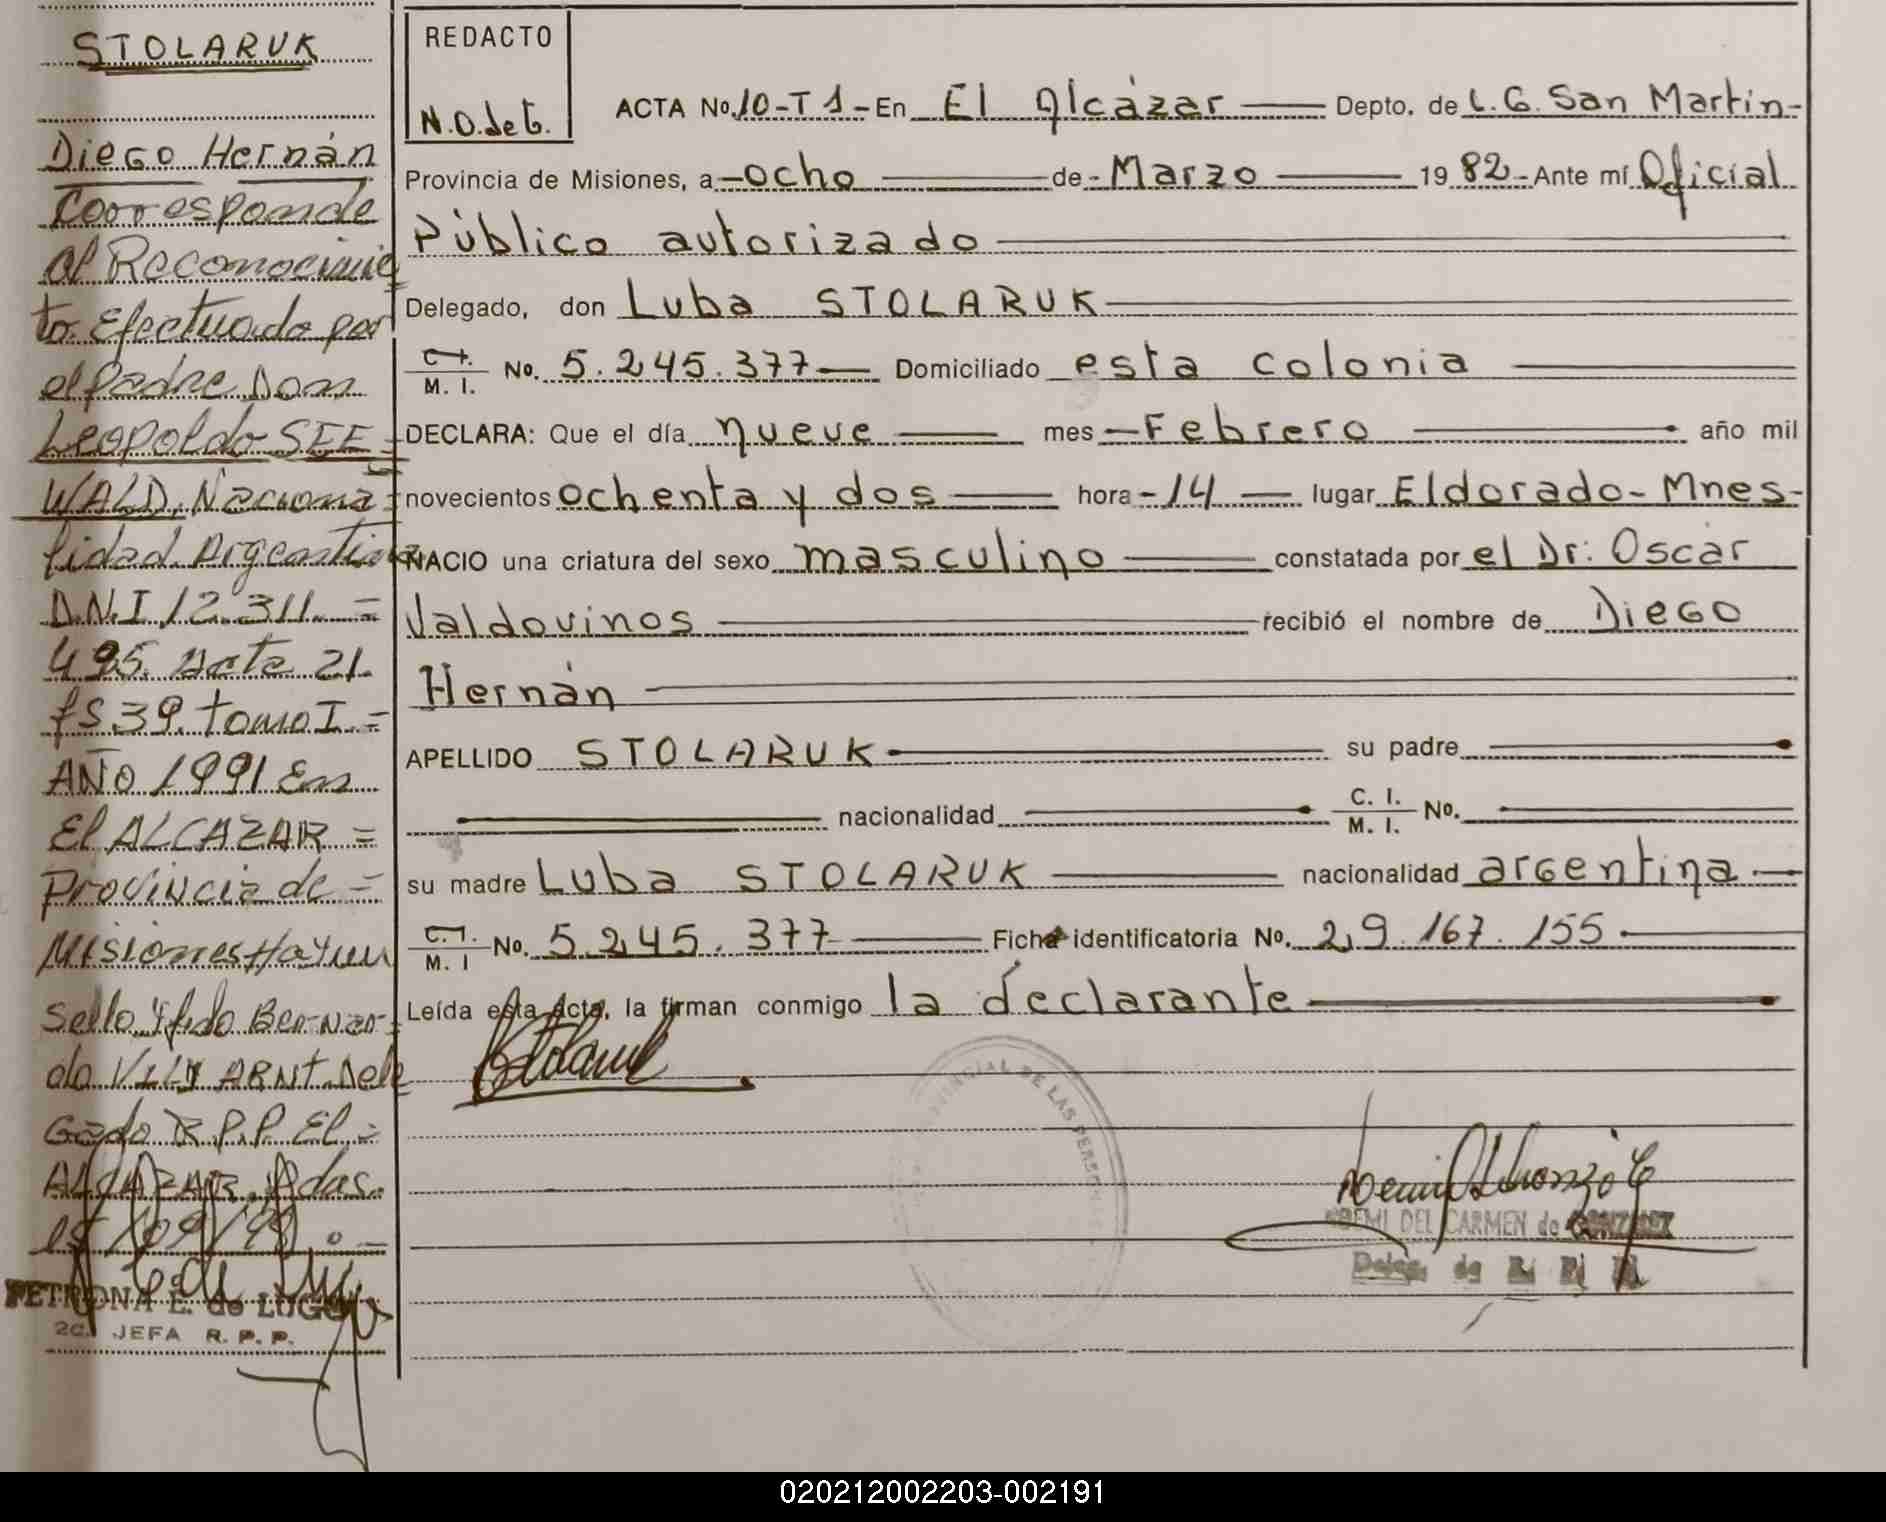 STOLARUK
Diego Hernán
Corresponde
al Reconocimie=
to Efectuado por
el padre Don
Leopoldo SEE=
WALD, Naciona=
lidad Argentina
D.N.I 12.311.=
495. Acta 21.
fs 39. tomo I.=
AÑO 1991 En
El ALCAZAR=
Provincia de=
Misiones Hay un
Sello y fdo Bernar=
do VILY ARNT. Dele
Gado R.P.P. El=
ALCAZAR. Pdas.
PETRONA E. de LUGO
2a. JEFA R. P. P.
REDACTO
N.O.de G.
ACTA No. 10-T1- En El Alcázar Depto. de L.G. San Martín-
Provincia de Misiones, a -ocho de - Marzo 1982- Ante mí Oficial
Público autorizado
Delegado, don Luba STOLARUK
C. I.
M. I. No. 5.245.377 Domiciliado esta colonia
DECLARA: Que el día nueve mes Febrero año mil
novecientos ochenta y dos hora -14 lugar Eldorado- Mnes-
NACIO una criatura del sexo masculino constatada por el Dr. Oscar
Valdovinos recibió el nombre de Diego
Hernán
APELLIDO STOLARUK su padre
nacionalidad C. I.
M. I. No.
su madre Luba STOLARUK nacionalidad argentina
C. I.
M. I No. 5.245.377 Ficha identificatoria No. 29.167.155
Leída esta Acta, la firman conmigo la declarante
PROVINCIAL DE LAS PERSONAS
NOEMI DEL CARMEN de GONZALEZ
Deleg. de R. P. P.
020212002203-002191